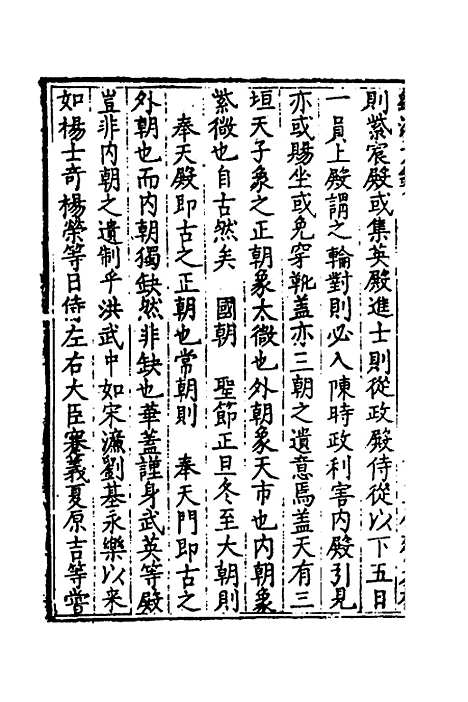 則紫宸殿或集英殿進士則從政殿侍從以下五日
一員上殿謂之輪對則必入陳時政利害内殿引見
亦或賜坐或免穿靴盖亦三朝之遺意焉盖天有三
垣天子象之正朝象太微也外朝象天市也内朝象
紫微也自古然矣　國朝　聖節正旦冬至大朝則
奉天殿即古之正朝也常朝則　奉天門即古之
外朝也而内朝獨缺然非缺也華蓋謹身武英等殿
豈非内朝之遺制乎洪武中如宋濂劉基永樂以来
如楊士奇楊榮等日侍左右大臣蹇義夏原吉等嘗